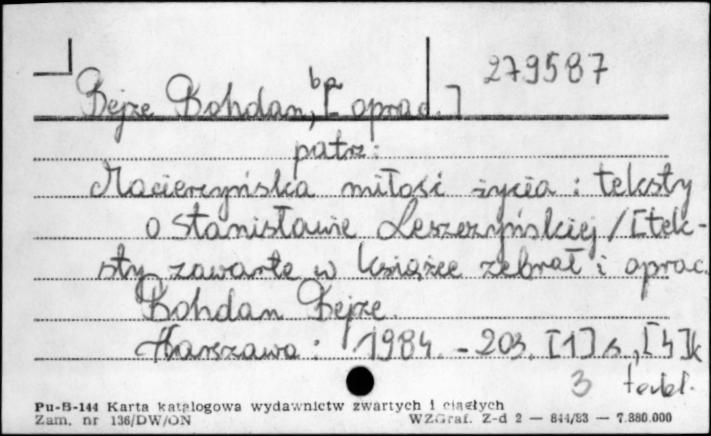 279587
Bejze Bohdan, bp [oprac.]
patrz:
Macierzyńska miłość życia : teksty
o Stanisławie Leszczyńskiej / [tek-
sty zawarte w książce zebrał i oprac.
Bohdan Bejze.
Warszawa : 1984. - 203, [1] s., [4] k
3 tabl.
Pu-B-144 Karta katalogowa wydawnictw zwartych i ciągłych
Zam. nr 136/DW/ON WZGraf. Z-d 2 — 844/83 — 7.880.000